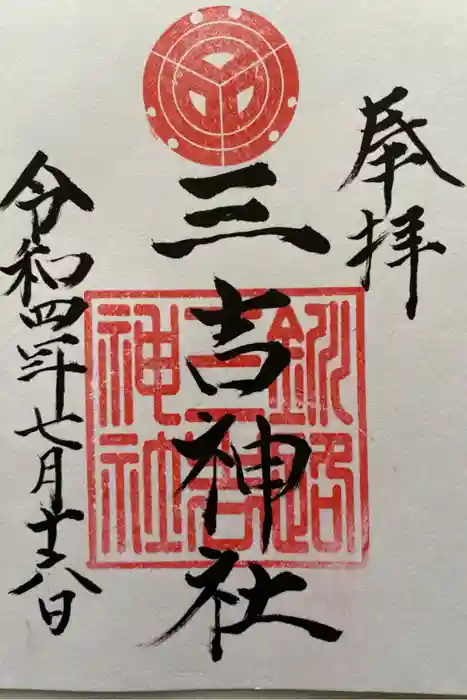 奉拝
三吉神社
釧路
三吉
神社
令和四年七月十六日